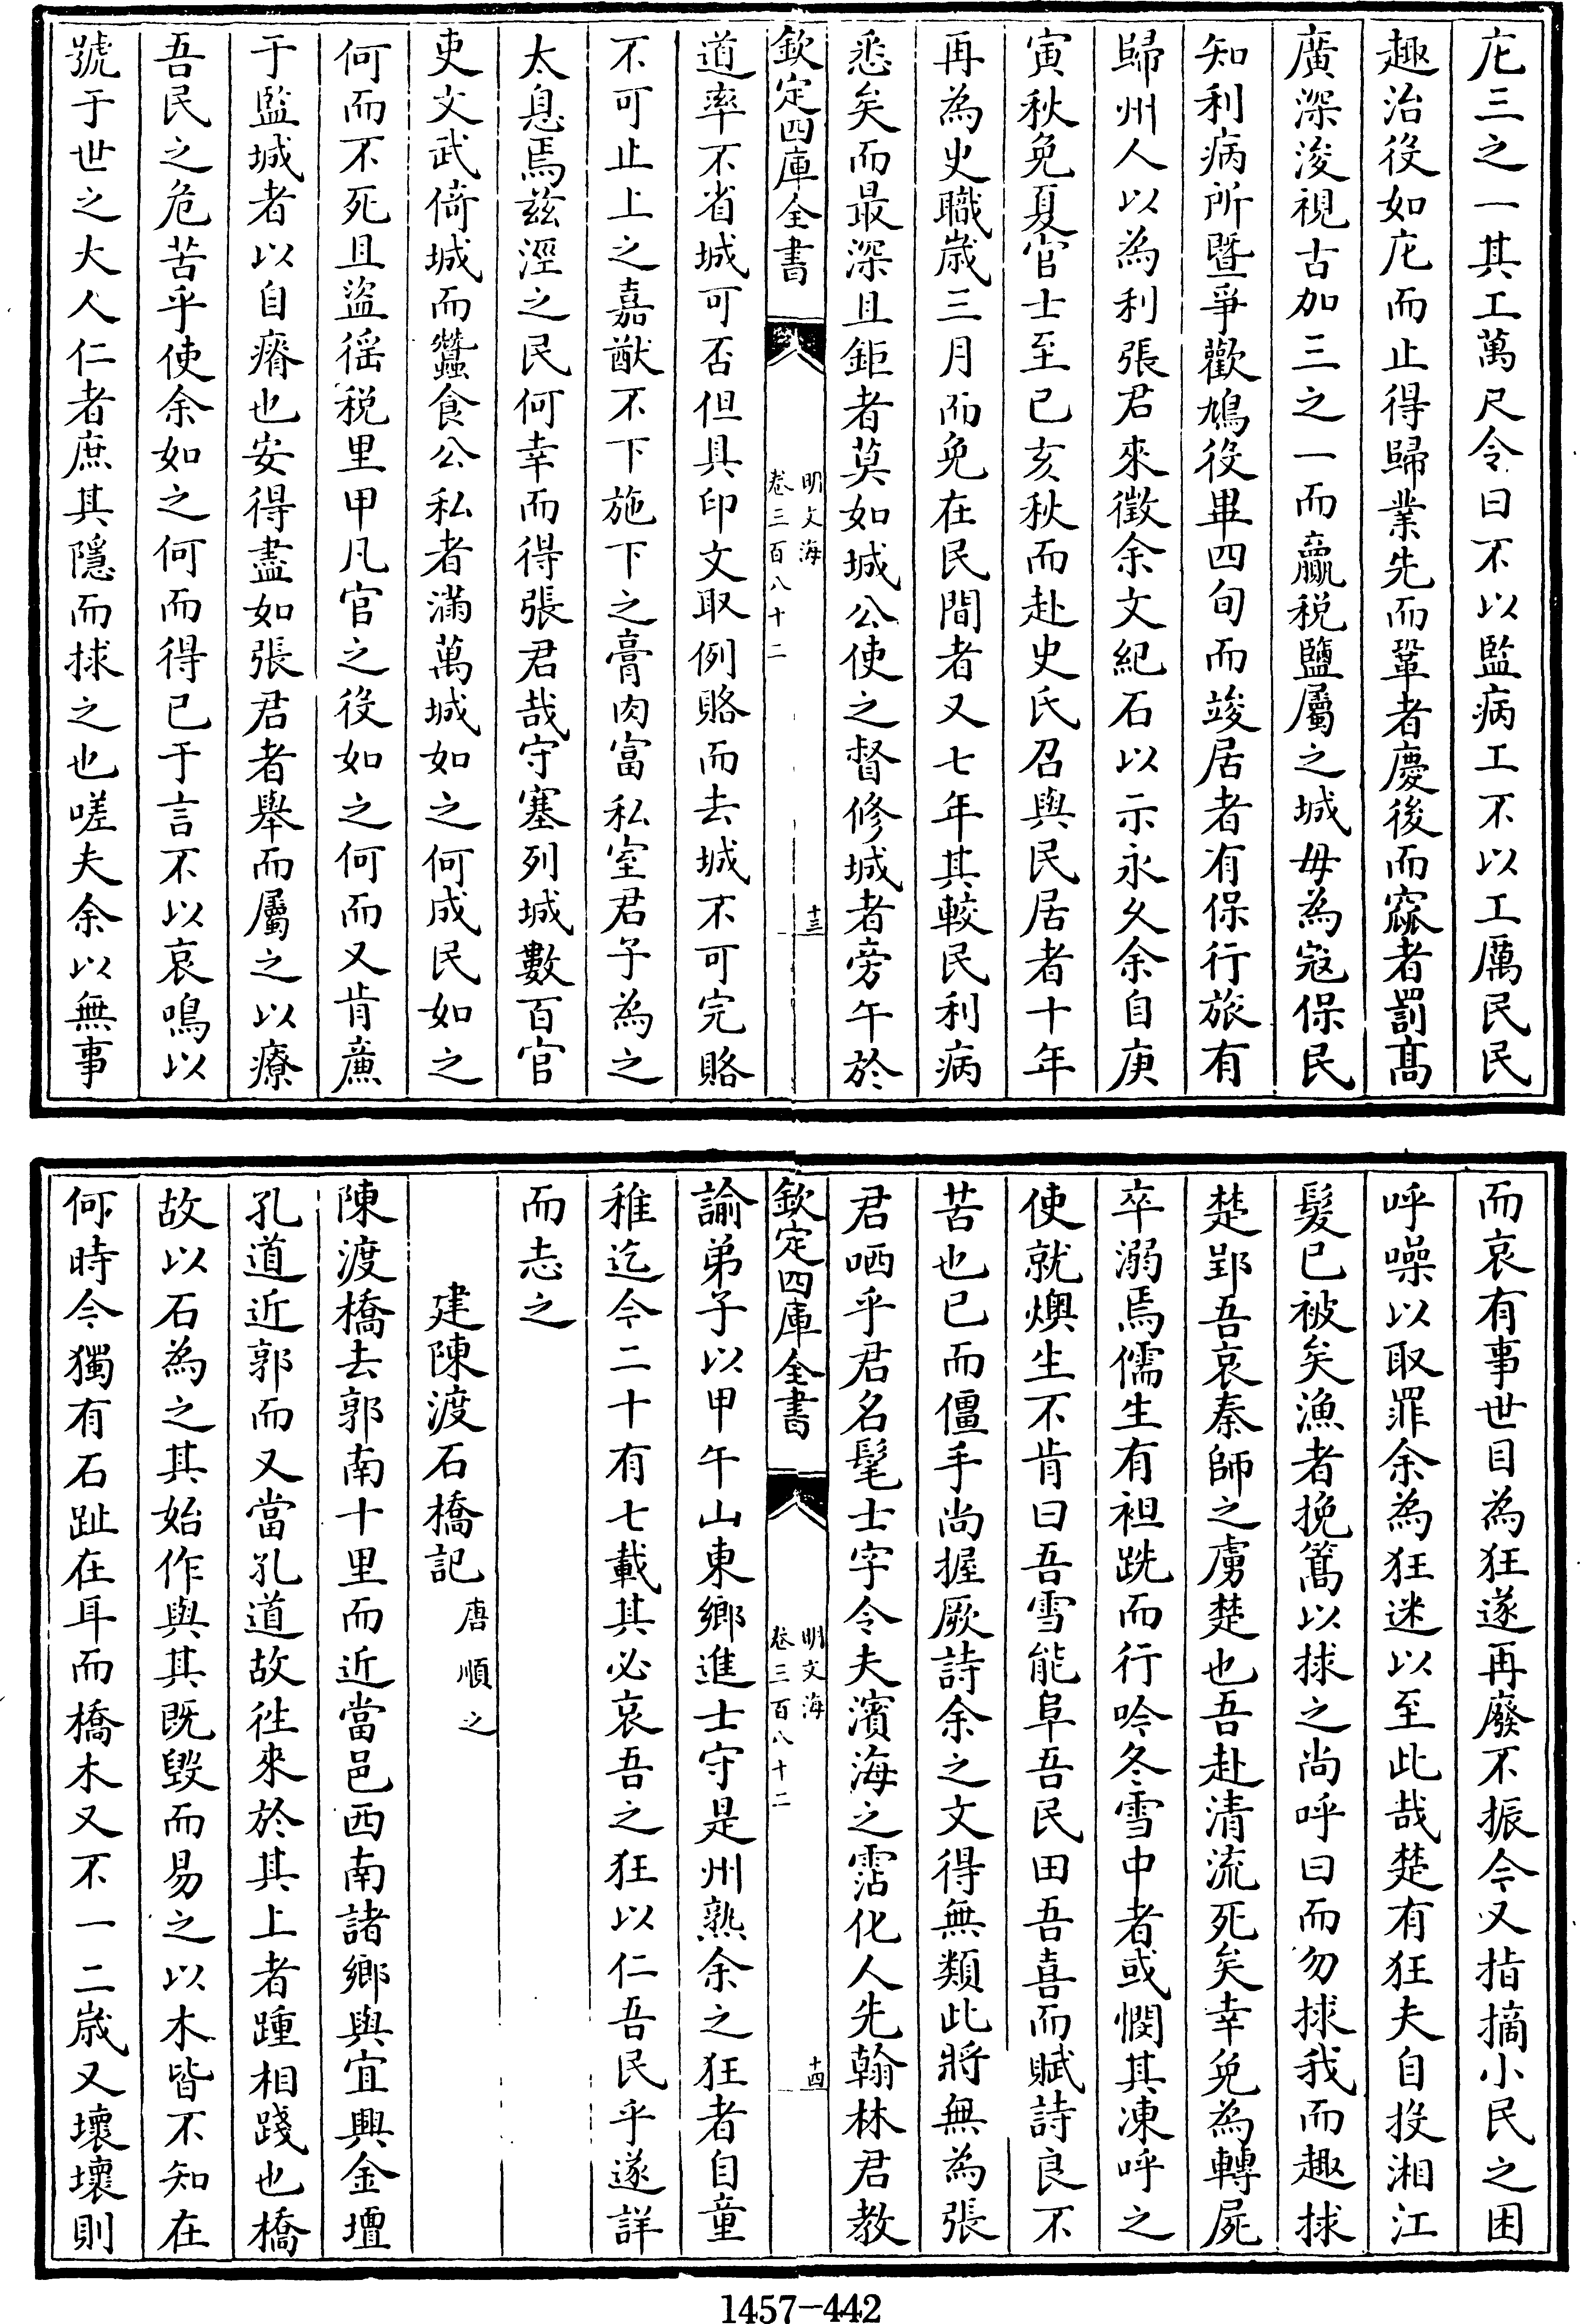 庀三之一其工萬尺令曰不以監病工不以工厲民民
趣治役如庀而止得歸業先而鞏者慶後而窳者罰髙
廣深浚視古加三之一而羸税鹽屬之城毋為寇保民
知利病所暨爭歡鳩役畢四旬而竣居者有保行旅有
歸州人以為利張君來徵余文紀石以示永久余自庚
寅秋免夏官士至已亥秋而赴史氏召與民居者十年
再為史職歲三月而免在民間者又七年其較民利病
悉矣而最深且鉅者莫如城公使之督修城者旁午於
欽定四庫全書
明文海
卷三百八十二
十三
道率不省城可否但具印文取例賂而去城不可完賂
不可止上之嘉猷不下施下之膏肉富私室君子為之
太息焉兹涇之民何幸而得張君哉守塞列城數百官
吏文武倚城而蠶食公私者滿萬城如之何成民如之
何而不死且盜徭税里甲凡官之役如之何而又肯亷
于監城者以自瘠也安得盡如張君者舉而屬之以療
吾民之危苦乎使余如之何而得已于言不以哀鳴以
號于世之大人仁者庶其隱而捄之也嗟夫余以無事
而哀有事世目為狂遂再廢不振今又指摘小民之困
呼噪以取罪余為狂迷以至此哉楚有狂夫自投湘江
髮已被矣漁者挽篙以捄之尚呼曰而勿捄我而趣捄
楚郢吾哀秦師之虜楚也吾赴清流死矣幸免為轉屍
卒溺焉儒生有袒跣而行吟冬雪中者或憫其凍呼之
使就燠生不肯曰吾雪能阜吾民田吾喜而賦詩良不
苦也已而僵手尚握厥詩余之文得無類此將無為張
君哂乎君名髦士字令夫濱海之霑化人先翰林君教
欽定四庫全書
明文海
卷三百八十二
十四
諭弟子以甲午山東鄉進士守是州熟余之狂者自童
稚迄今二十有七載其必哀吾之狂以仁吾民乎遂詳
而志之
建陳渡石橋記 唐順之
陳渡橋去郭南十里而近當邑西南諸鄉與宜興金壇
孔道近郭而又當孔道故徃來於其上者踵相踐也橋
故以石為之其始作與其既毀而易之以木皆不知在
何時今獨有石趾在耳而橋木又不一二歲又壞壞則
1457-442